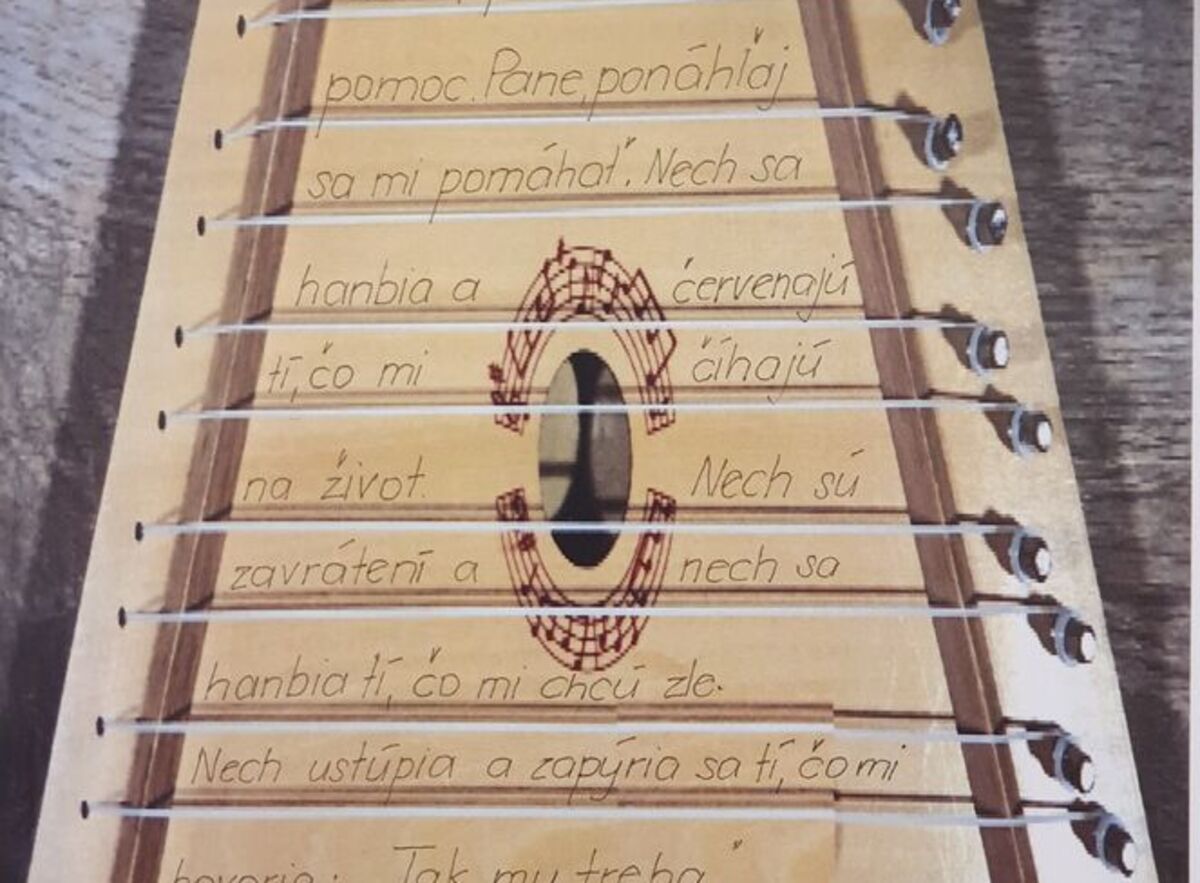 pomoc. Pane, ponáhľaj
sa mi pomáhať. Nech sa
hanbia a červenajú
tí, čo mi číhajú
na život. Nech sú
zavrátení a nech sa
hanbia tí, čo mi chcú zle.
Nech ustúpia a zapýria sa tí, čo mi
hovoria: „Tak mu treba